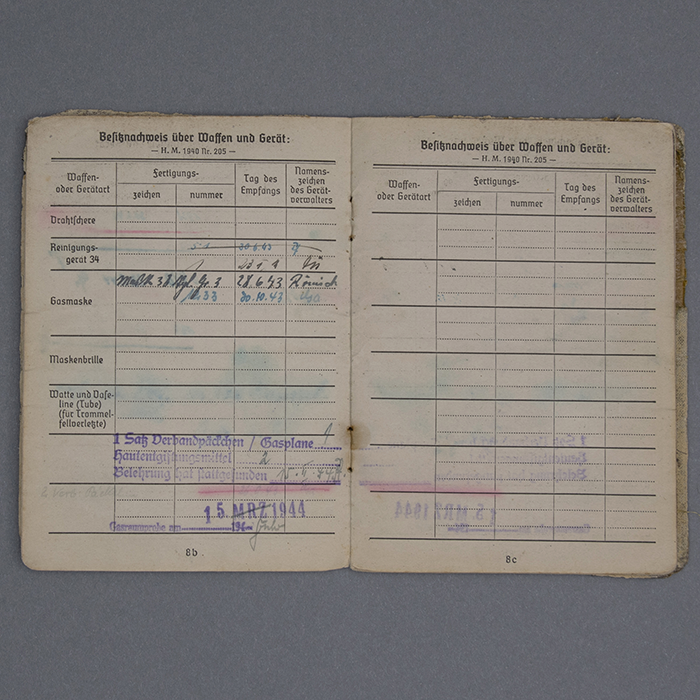 Besitznachweis über Waffen und Gerät:
— H. M. 1940 Nr. 205 —
Waffen- oder Gerätart
Fertigungs-
zeichen
nummer
Tag des Empfangs
Namens-zeichen des Gerät-verwalters
Drahtschere
Reinigungs-
gerät 34
Gasmaske
28.6.43
Gr. 3
30.10.43
Maskenbrille
Watte und Vase-
line (Tube)
(für Trommel-
fellverletzte)
1 Satz Verbandpäckchen / Gasplane 1
Hautentgiftungsmittel 2
Belehrung hat stattgefunden
15. MRZ 1944
Gasraumprobe am 194
8b
Besitznachweis über Waffen und Gerät:
— H. M. 1940 Nr. 205 —
Waffen-
oder Gerätart
Fertigungs-
zeichen
nummer
Tag des
Empfangs
Namens-
zeichen
des Gerät-
verwalters
8c